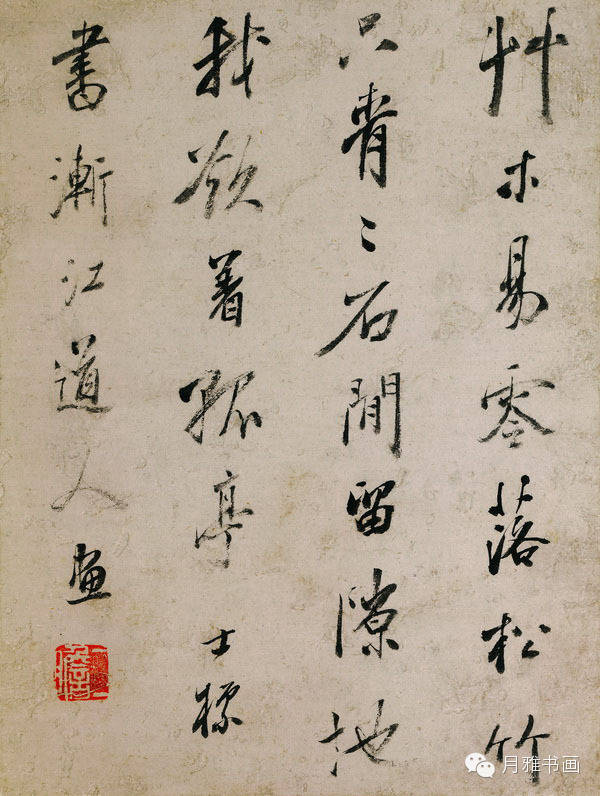 艸木易零落松竹
只青〻石間留隙地
我欲着孤亭 士標
書漸江道人畫
月雅书画